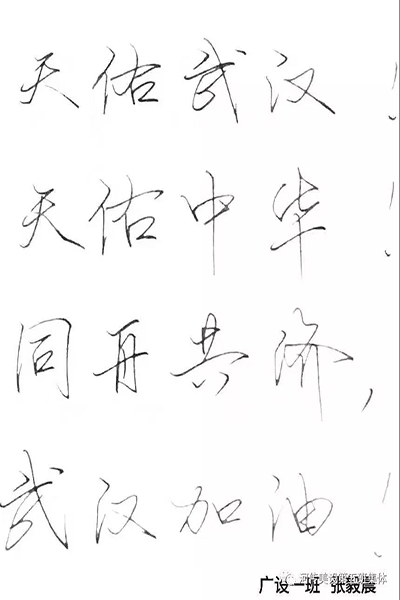 天佑武汉!
天佑中华!
同再共济,
武汉加油!
广设一班 张毅晨